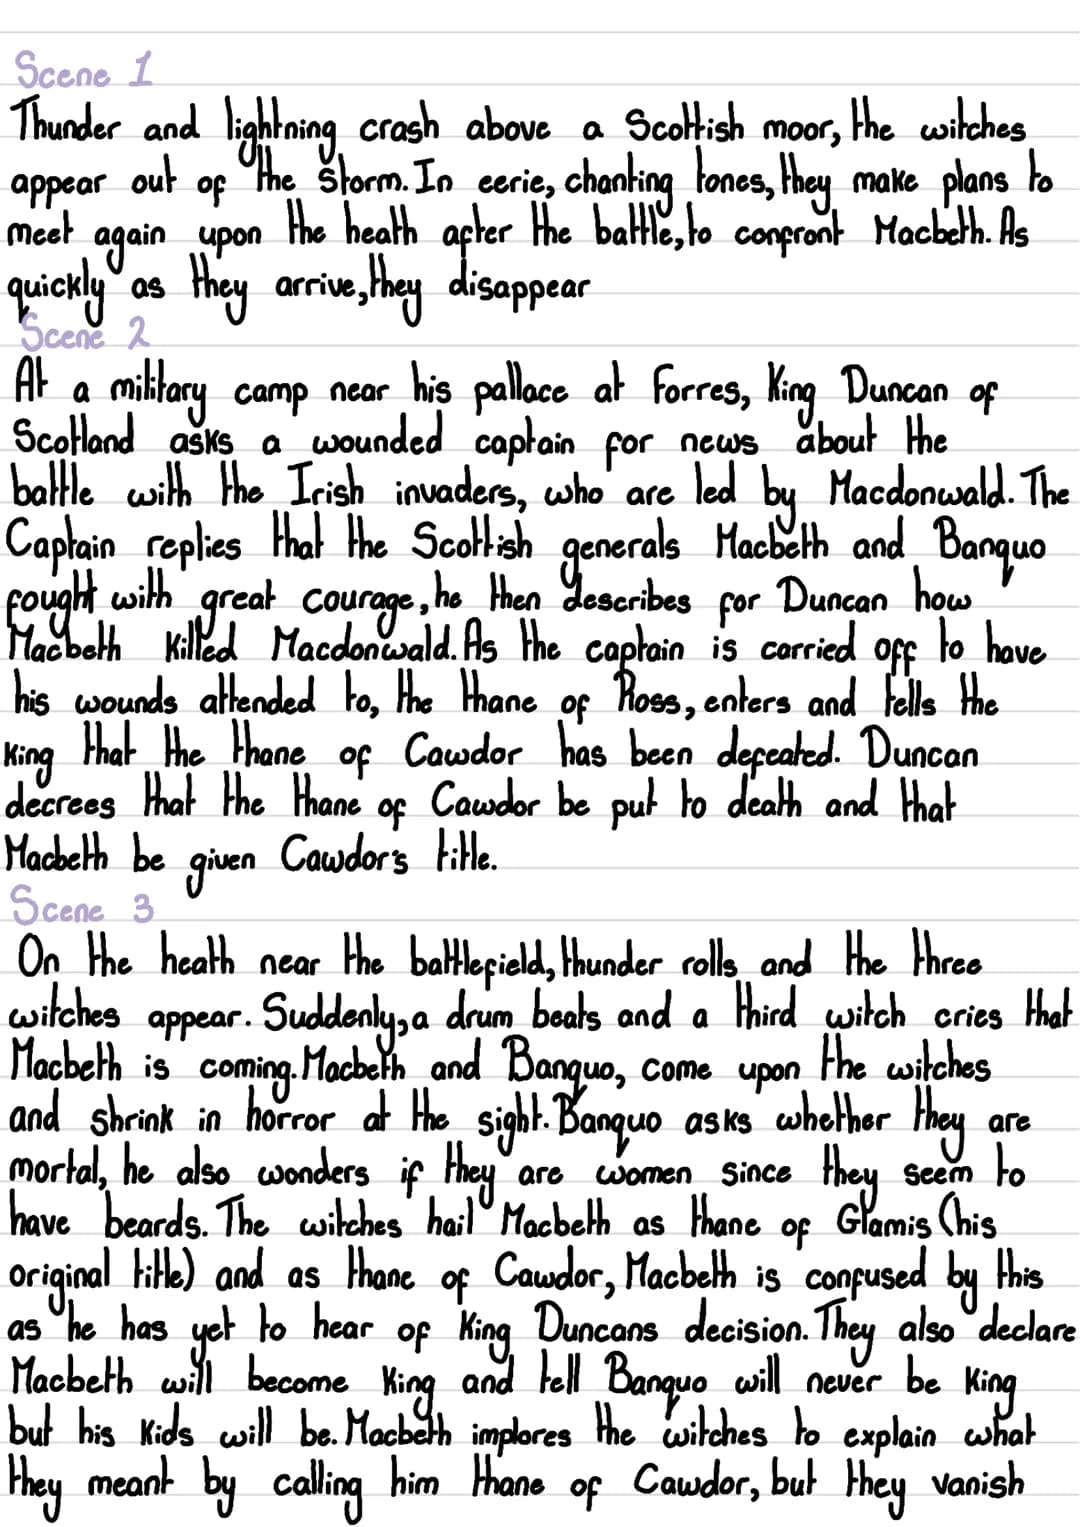 Scene 1
Thunder and lightning crash above a Scottish moor, the witches
appear out of the storm. In eerie, chanting tones, they make plans to
meet again upon the heath after the battle, to confront Macbeth. As
quickly as they arrive, they disappear
Scene 2
At a military camp near his pallace at Forres, King Duncan of
Scotland asks a wounded captain for news about the
battle with the Irish invaders, who are led by Macdonwald. The
Captain replies that the Scottish generals Macbeth and Banquo
fought with great courage, he then describes for Duncan how
Macbeth killed Macdonwald. As the captain is carried off to have
his wounds attended to, the thane of Ross, enters and tells the
King that the thane of Cawdor has been defeated. Duncan
decrees that the thane of Cawdor be put to death and that
Macbeth be given Cawdor's title.
Scene 3
On the heath near the battlefield, thunder rolls and the three
witches appear. Suddenly, a drum beats and a third witch cries that
Macbeth is coming. Macbeth and Banquo, come upon the witches
and shrink in horror at the sight. Banquo asks whether they are
mortal, he also wonders if they are women since they seem to
have beards. The witches hail Macbeth as thane of Glamis (his
original title) and as thane of Cawdor, Macbeth is confused by this
as he has yet to hear of King Duncans decision. They also declare
Macbeth will become King and tell Banquo will never be King
but his kids will be. Macbeth implores the witches to explain what
they meant by calling him thane of Cawdor, but they vanish